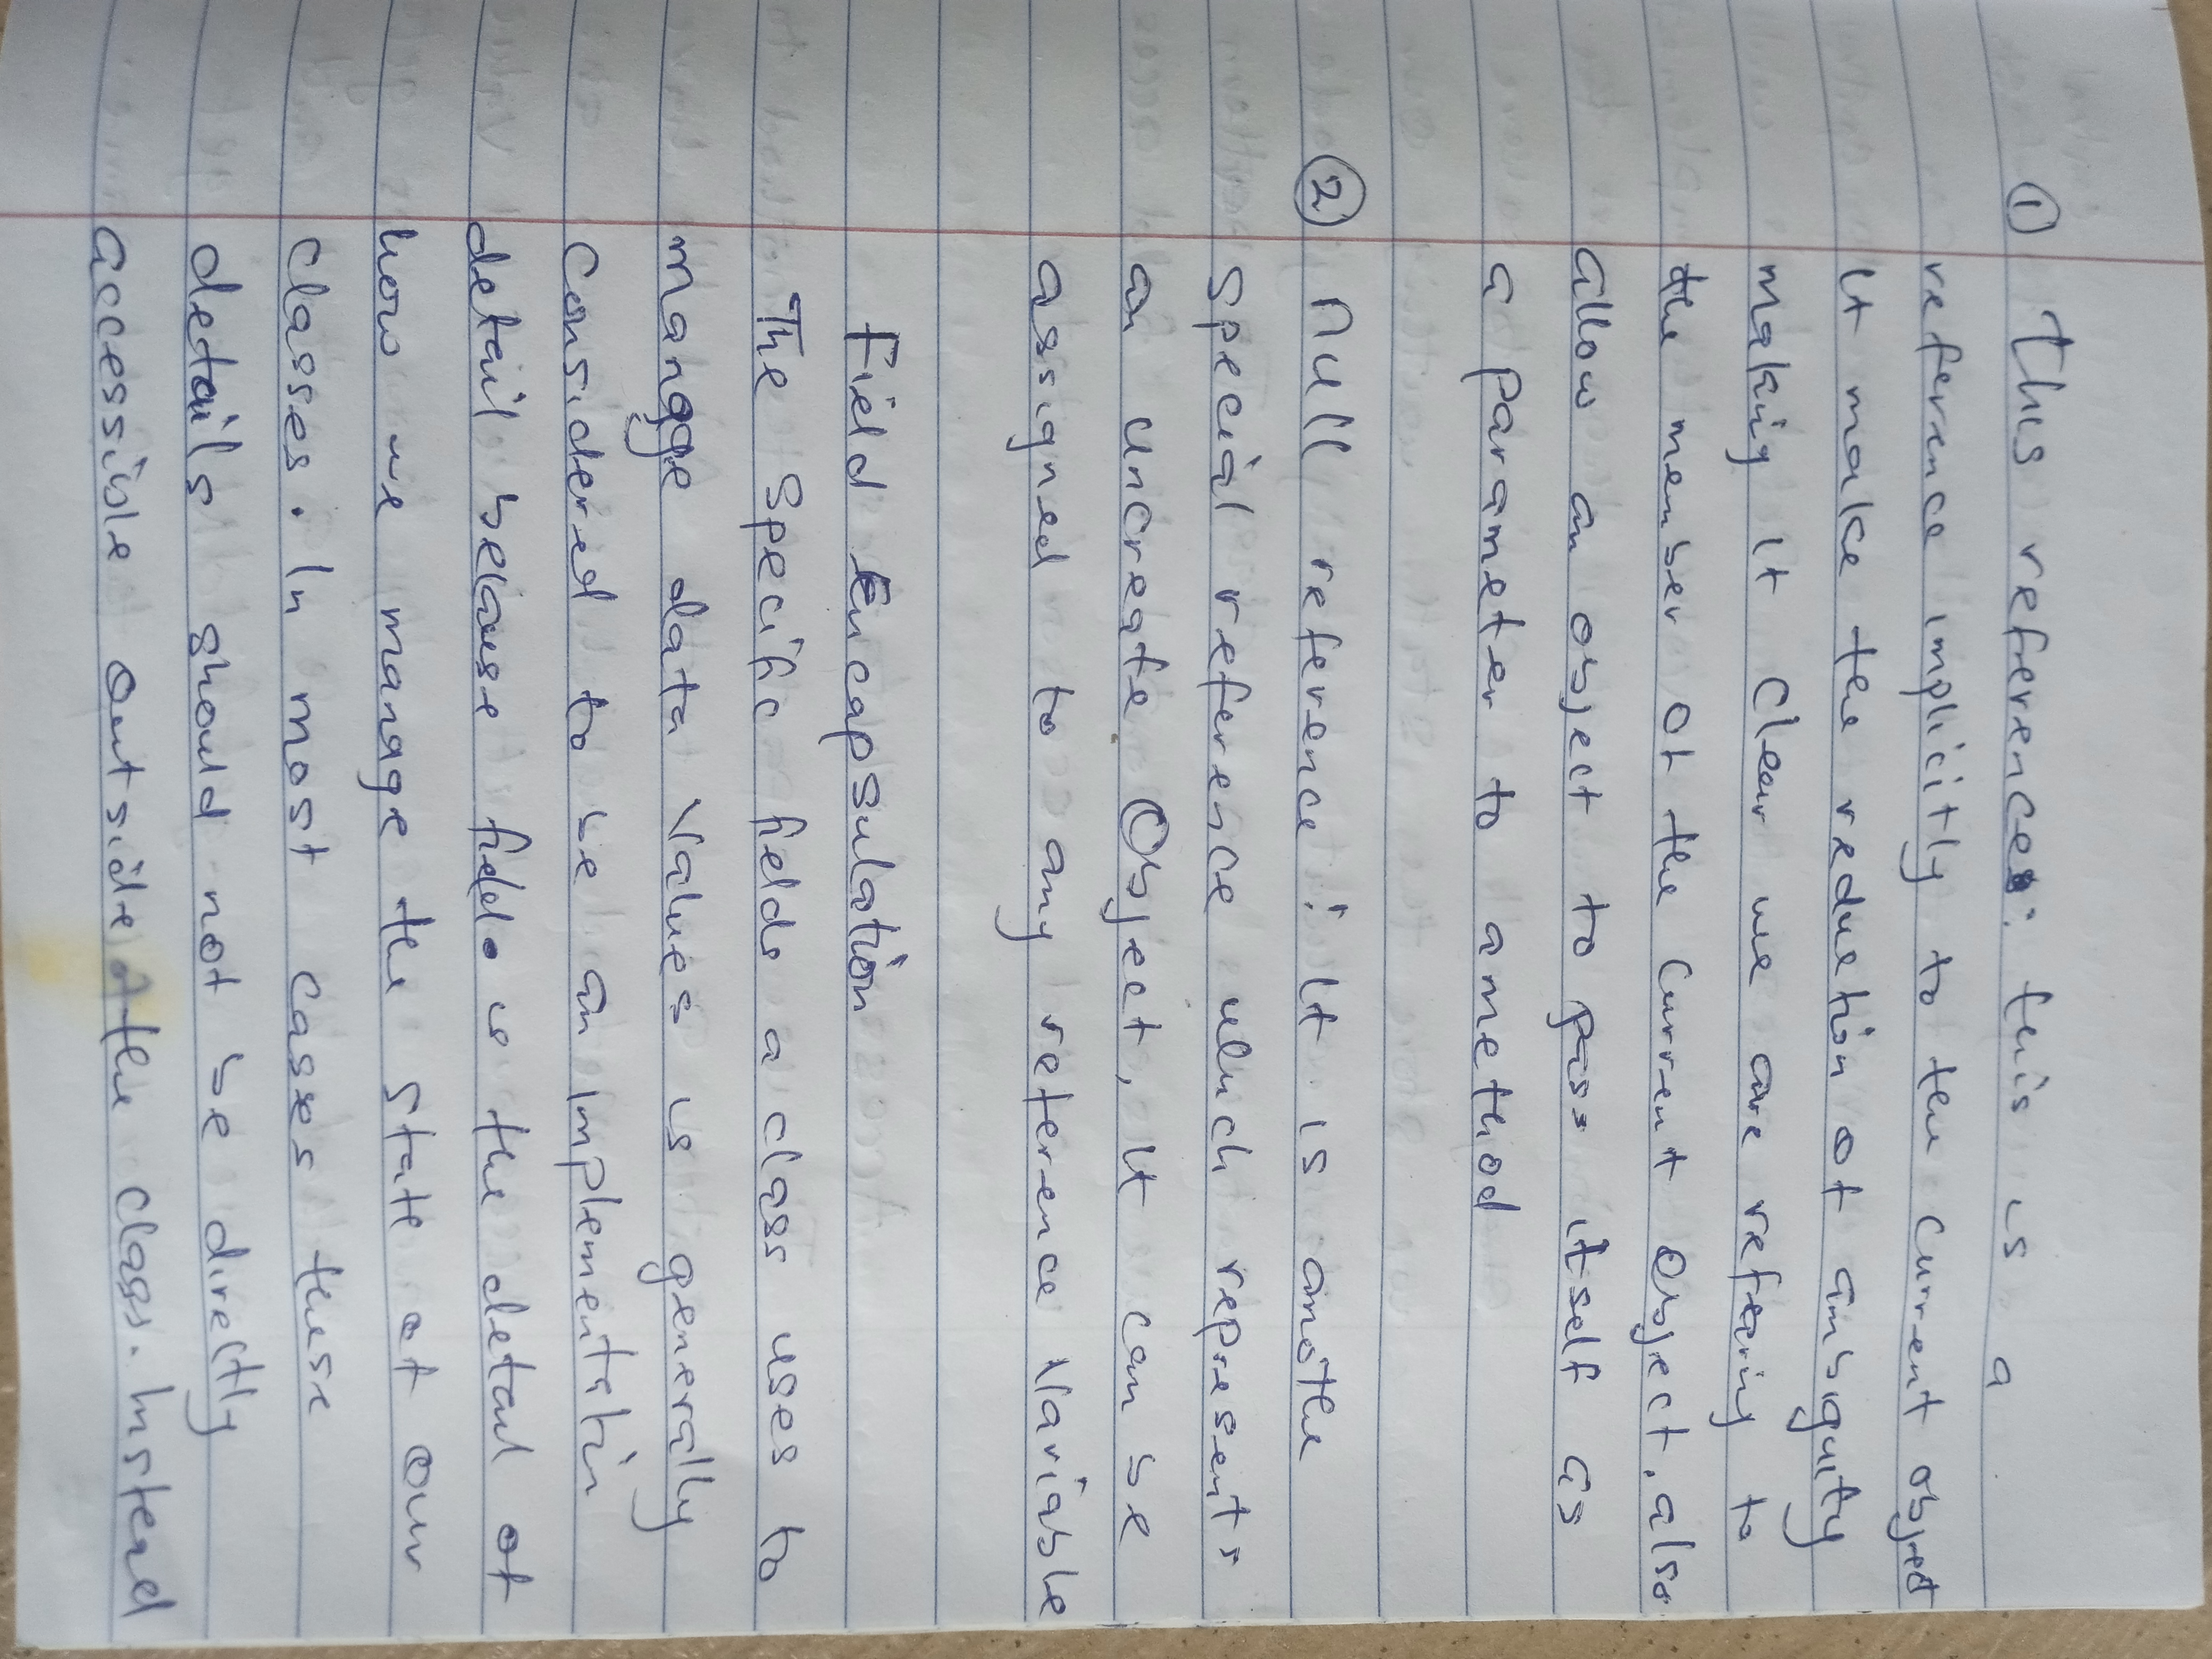 ① This references: this is a
reference implicitly to the current object
it make the reduction of ambiguity
making it clear we are refering to
the member of the current object, also
allow an object to pass itself as
a parameter to a method
② Null reference: it is anothe
special reference which represents
an uncreate Object, it can be
assigned to any reference variable
Field Encapsulation
The specific fields a class uses to
mangge data values is generally
considered to be an implementatin
detail because field is the detail of
how we manage the state of our
classes. In most cases these
details should not be directly
accessible outside the class. Instead